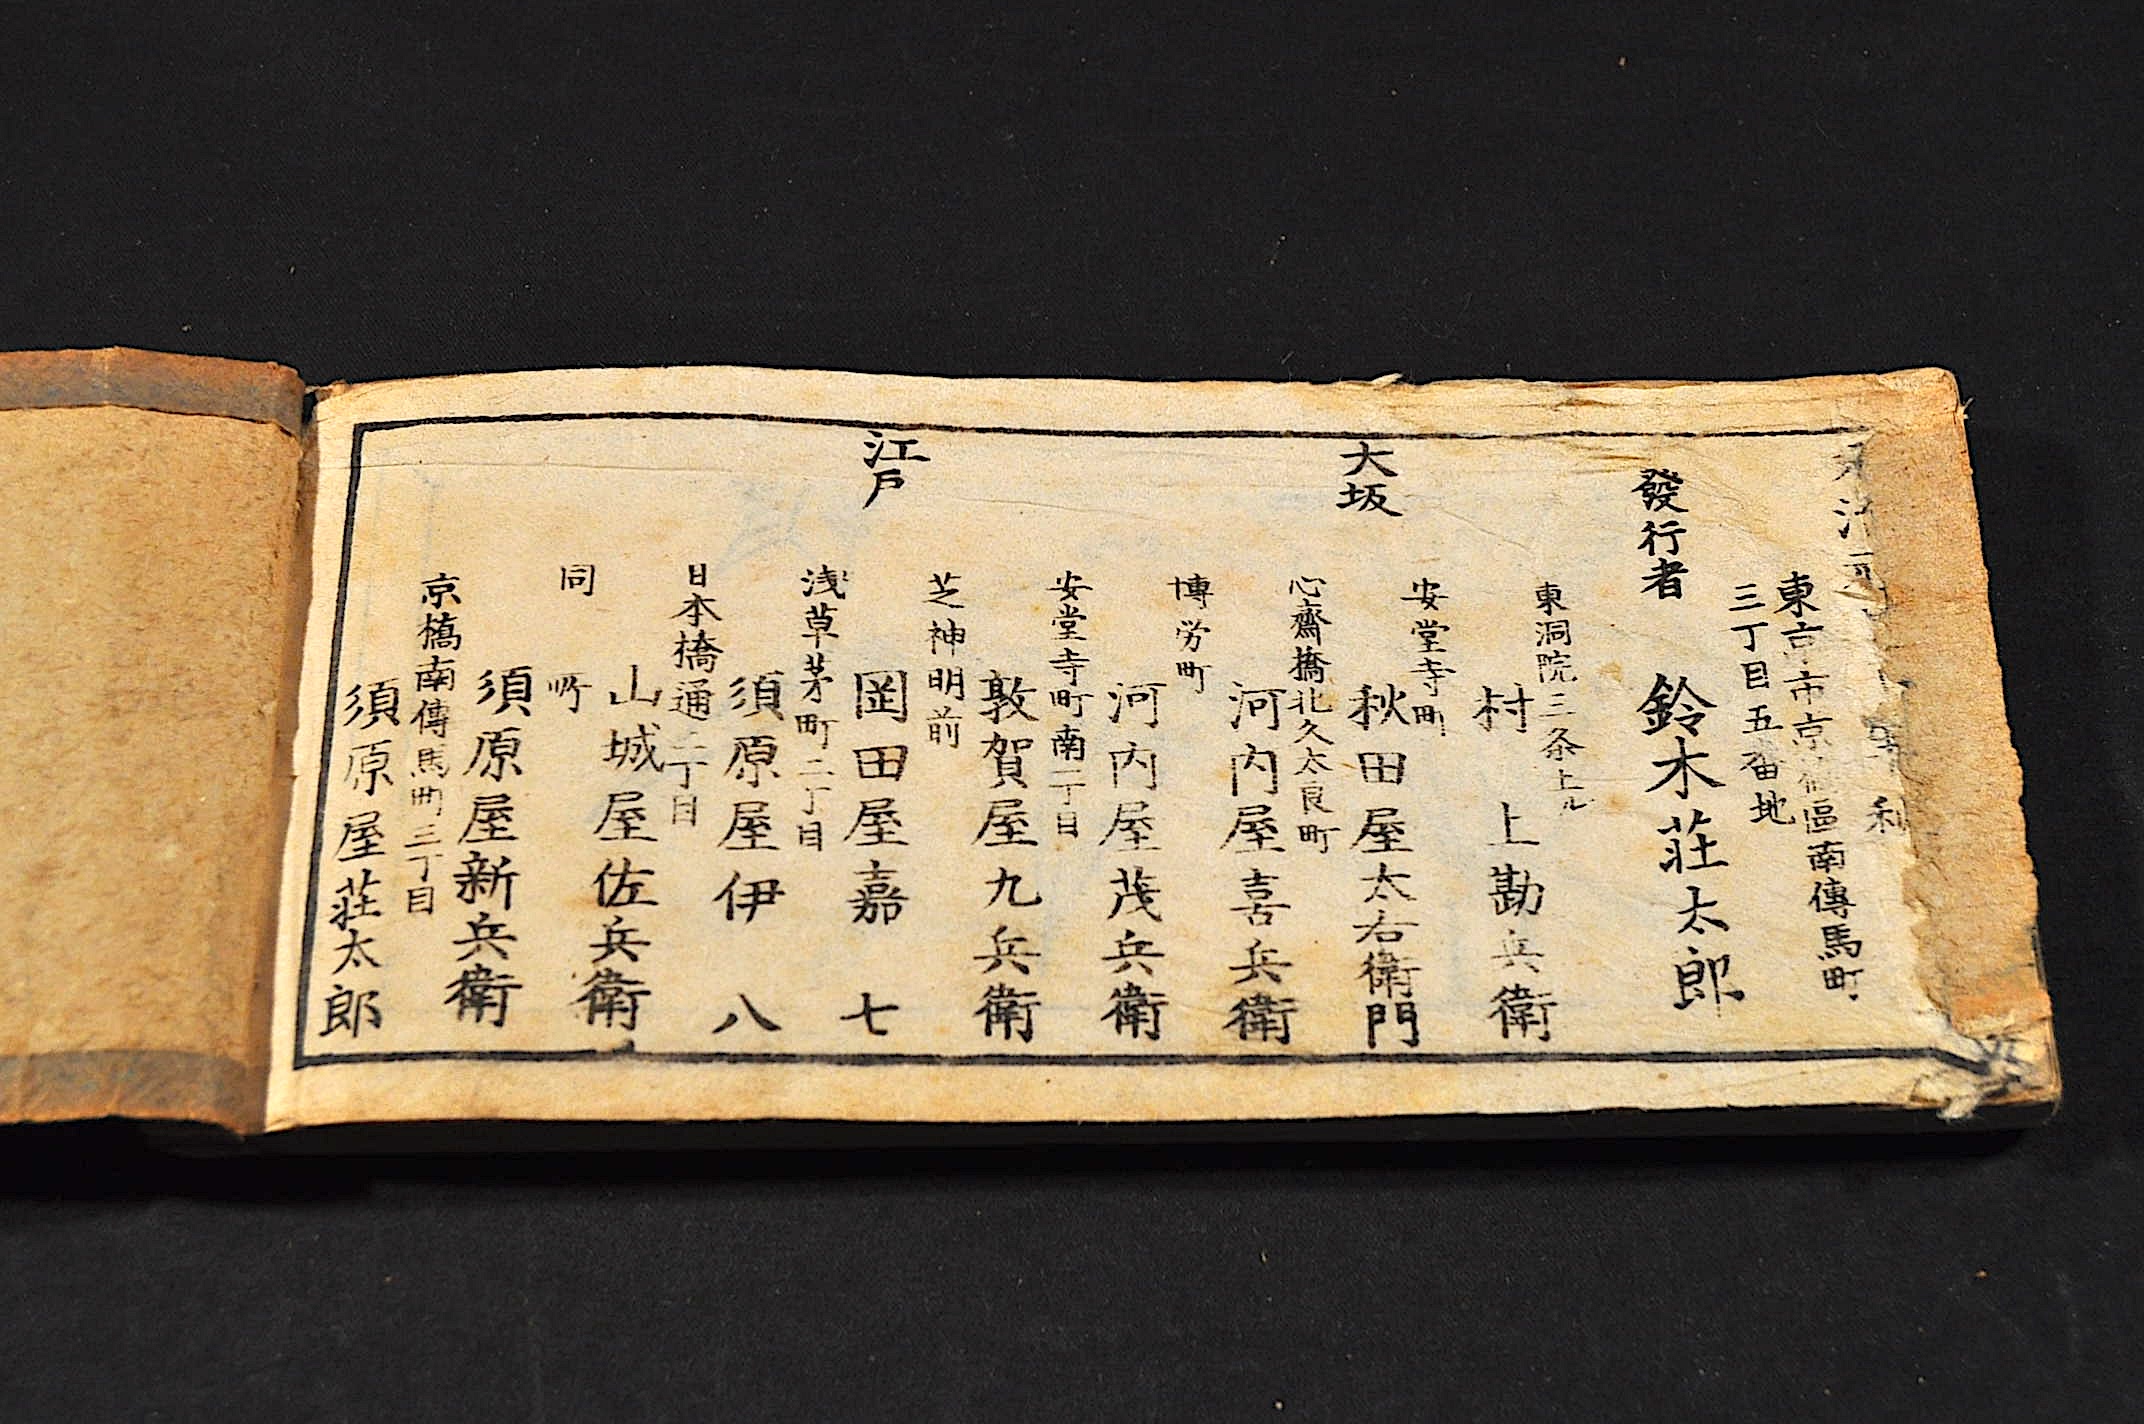 東京市京橋區南傳馬町
三丁目五番地
發行者 鈴木荘太郎
東洞院三条上ル
村上勘兵衛
安堂寺町
大坂 秋田屋太右衛門
心齋橋北久太良町
河内屋喜兵衛
博労町
河内屋茂兵衛
安堂寺町南一丁目
敦賀屋九兵衛
芝神明前
江戸 岡田屋嘉七
浅草茅町二丁目
須原屋伊八
日本橋通二丁目
山城屋佐兵衛
同所
須原屋新兵衛
京橋南傳馬町三丁目
須原屋荘太郎